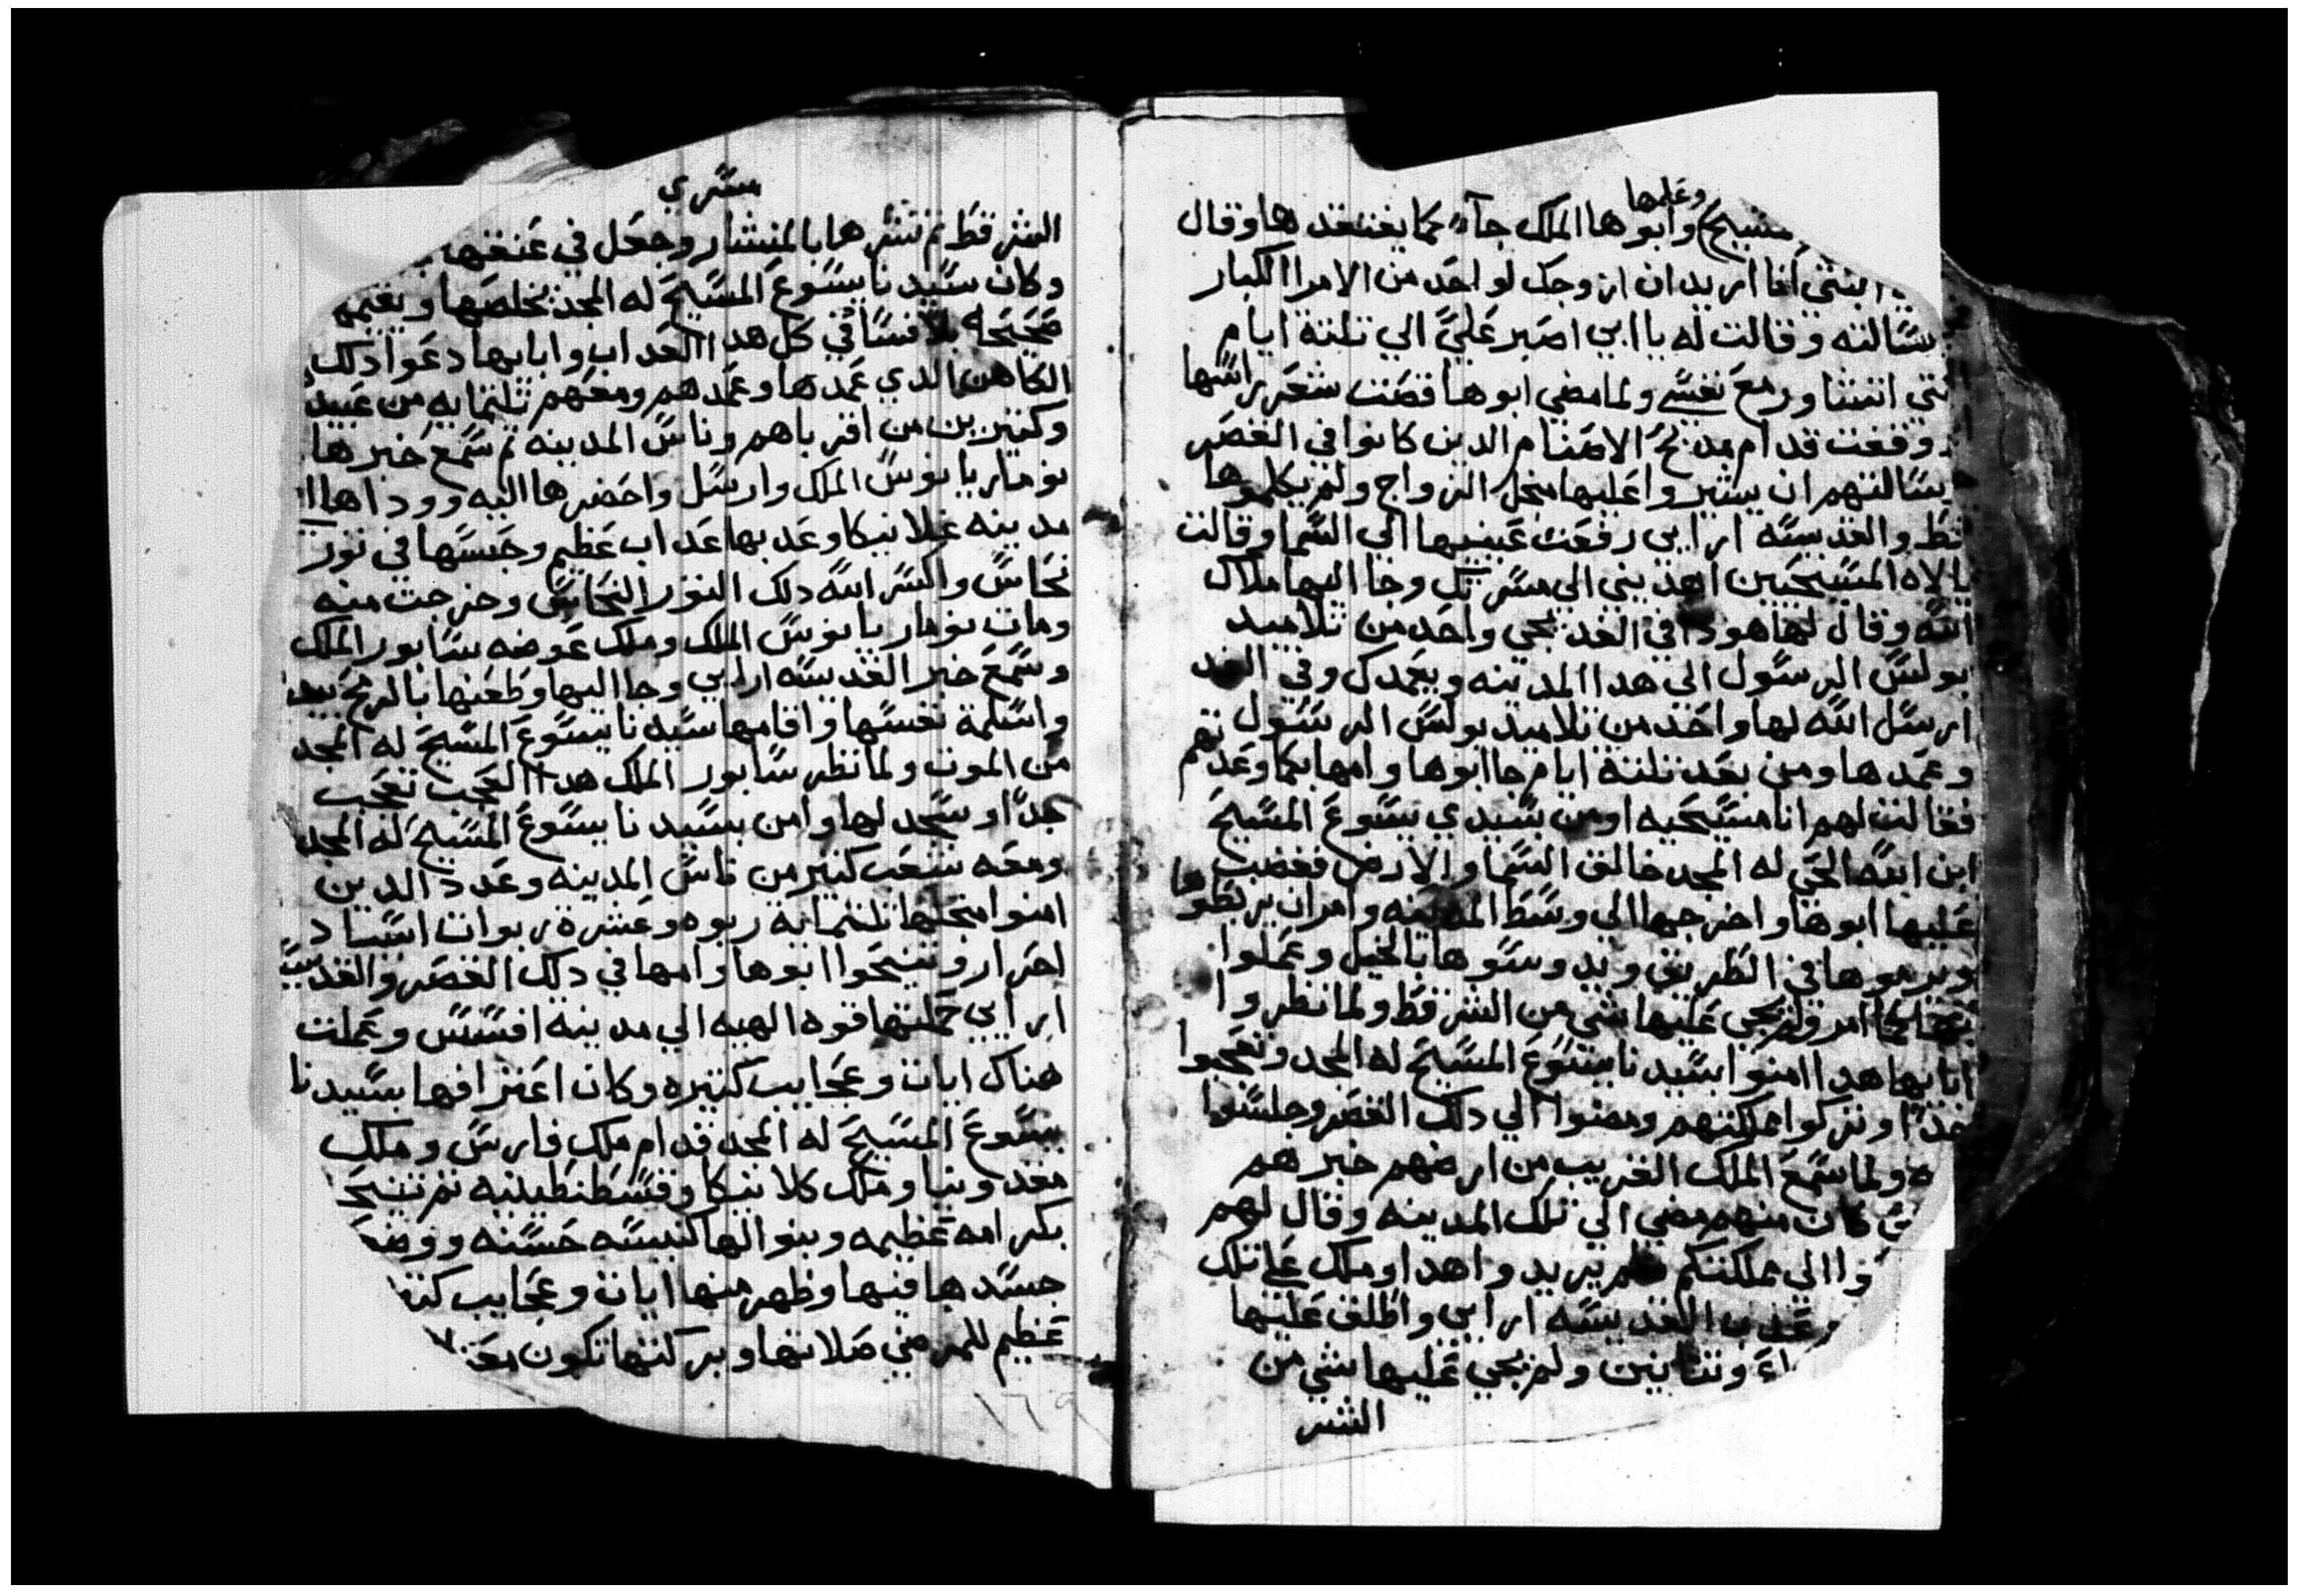 وعلمها
وابوها الملك جاء كما يفتقدها وقال
ابنتي انا اريد ان ازوجك لواحد من الامرا الكبار
سالته وقالت له يا ابي اصبر علي الي تلتة ايام
اتشاور مع نفسي ولما مضي ابوها قصت شعر راسها
ووقفت قدام مدبح الاصنام الدين كانوا في القصر
سالتهم ان يشيروا عليها منجل الزواج ولم يكلموها
قط والقديسه ارايي رفعت عينيها الي السما وقالت
يا الاه المسيحيين اهديني الي مسرتك وجا اليها ملاك
الله وقال لها هودا في الغد يجي واحد من تلاميد
بولس الرسول الي هدا المدينه ويعمدك وفي الغد
ارسل الله لها واحد من تلاميد بولس الرسول
وعمدها ومن بعد تلتة ايام جا ابوها وامها كما وعدتهم
فقالت لهم انا مسيحيه اومن بسيدي يسوع المسيح
ابن الله الحي له المجد خالق السما والارض فغضب
عليها ابوها واخرجها الي وسط المدينه وامر ان يربطوها
ويرموها في الطريق ويدوسوها بالخيل وعملوا
كما امر ولم يجي عليها شي من الشر قط ولما نظروا
ابايها هدا امنوا بسيدنا يسوع المسيح له المجد وتعجبوا
جدًا وتركوا مملكتهم ومضوا الي دلك القصر وجلسوا
ولما سمع الملك القريب من ارضهم خبرهم
كان منهم مضي الي تلك المدينه وقال لهم
الي مملكتكم فلم يريدوا هدا وملك علي تلك
عدب القديسه ارايي واطلق عليها
وتنانين ولم يجي عليها شي من
الشر
مسري
الشر قط تم نشرها بالمنشار وجعل في عنقها
وكان سيدنا يسوع المسيح له المجد يخلصها ويقيمها
صحيحه بلا فساد في كل هدا العداب وابايها دعوا دلك
الكاهن الدي عمدها وعمدهم ومعهم تلتمايه من عبيد
وكتيرين من اقرباهم وناس المدينه تم سمع خبرها
نوماريانوس الملك وارسل واحضرها اليه ووداها ا
مدينه غلانيكا وعدبها عداب عظيم وحبسها في تور
نحاس واكسر الله دلك التور النحاس وخرجت منه
ومات نوماريانوس الملك وملك عوضه سابور الملك
وسمع خبر القديسه ارايي وجا اليها وطعنها بالرمح بيده
واسلمة نفسها واقامها سيدنا يسوع المسيح له المجد
من الموت ولما نظر سابور الملك هدا العجب تعجب
جدًا وسجد لها وامن بسيدنا يسوع المسيح له المجد
ومعه شعب كتير من ناس المدينه وعدد الدين
امنوا منجلها تلتماية ربوه وعشرة ربوات اسياد
احرار وتنيحوا ابوها وامها في دلك القصر والقديسه
ارايي حملتها قوه الهيه الي مدينه افسس وعملت
هناك ايات وعجايب كتيره وكان اعترافها بسيدنا
يسوع المسيح له المجد قدام ملك فارس وملك
مقدونيا وملك كلانيكا وقسطنطينيه تم تنيحت
بكرامه عظيمه وبنوا لها كنيسه حسنه ووضعوا
جسدها فيها وظهر منها ايات وعجايب
عظيم للمرضي صلاتها وبركتها تكون معنا
١٦٩